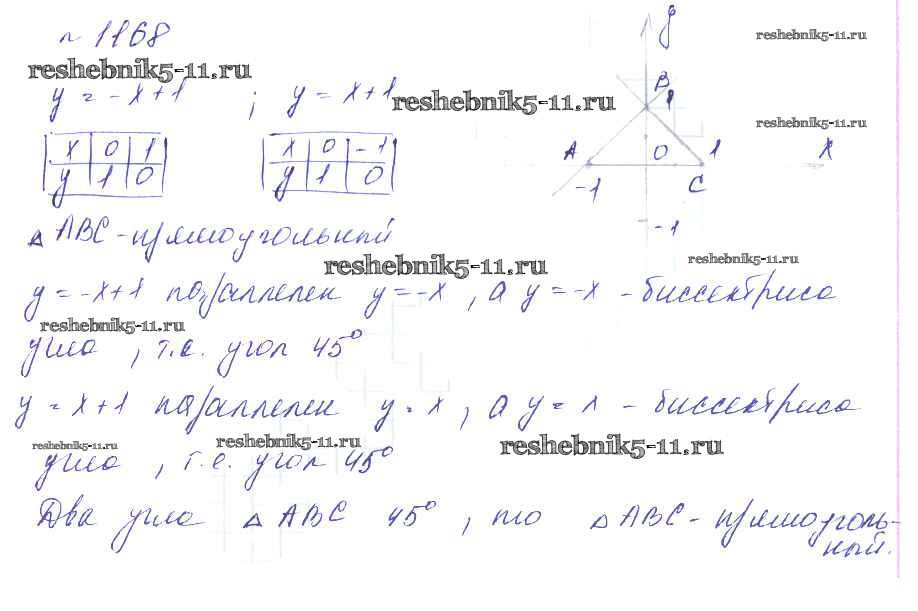 № 1168
reshebnik5-11.ru
y = -x+1 ; y = x+1
reshebnik5-11.ru
x 0 1
y 1 0
x 0 -1
y 1 0
y
reshebnik5-11.ru
B
1
reshebnik5-11.ru
A 0 1 x
-1 C
-1
△ ABC - прямоугольный
reshebnik5-11.ru
reshebnik5-11.ru
y = -x+1 параллелен y = -x , а y = -x - биссектриса
reshebnik5-11.ru
угла , т.е. угол 45°
y = x+1 параллелен y = x , а y = x - биссектриса
reshebnik5-11.ru
reshebnik5-11.ru
reshebnik5-11.ru
угла , т.е. угол 45°
Два угла △ ABC 45° , то △ ABC - прямоуголь-
ный.